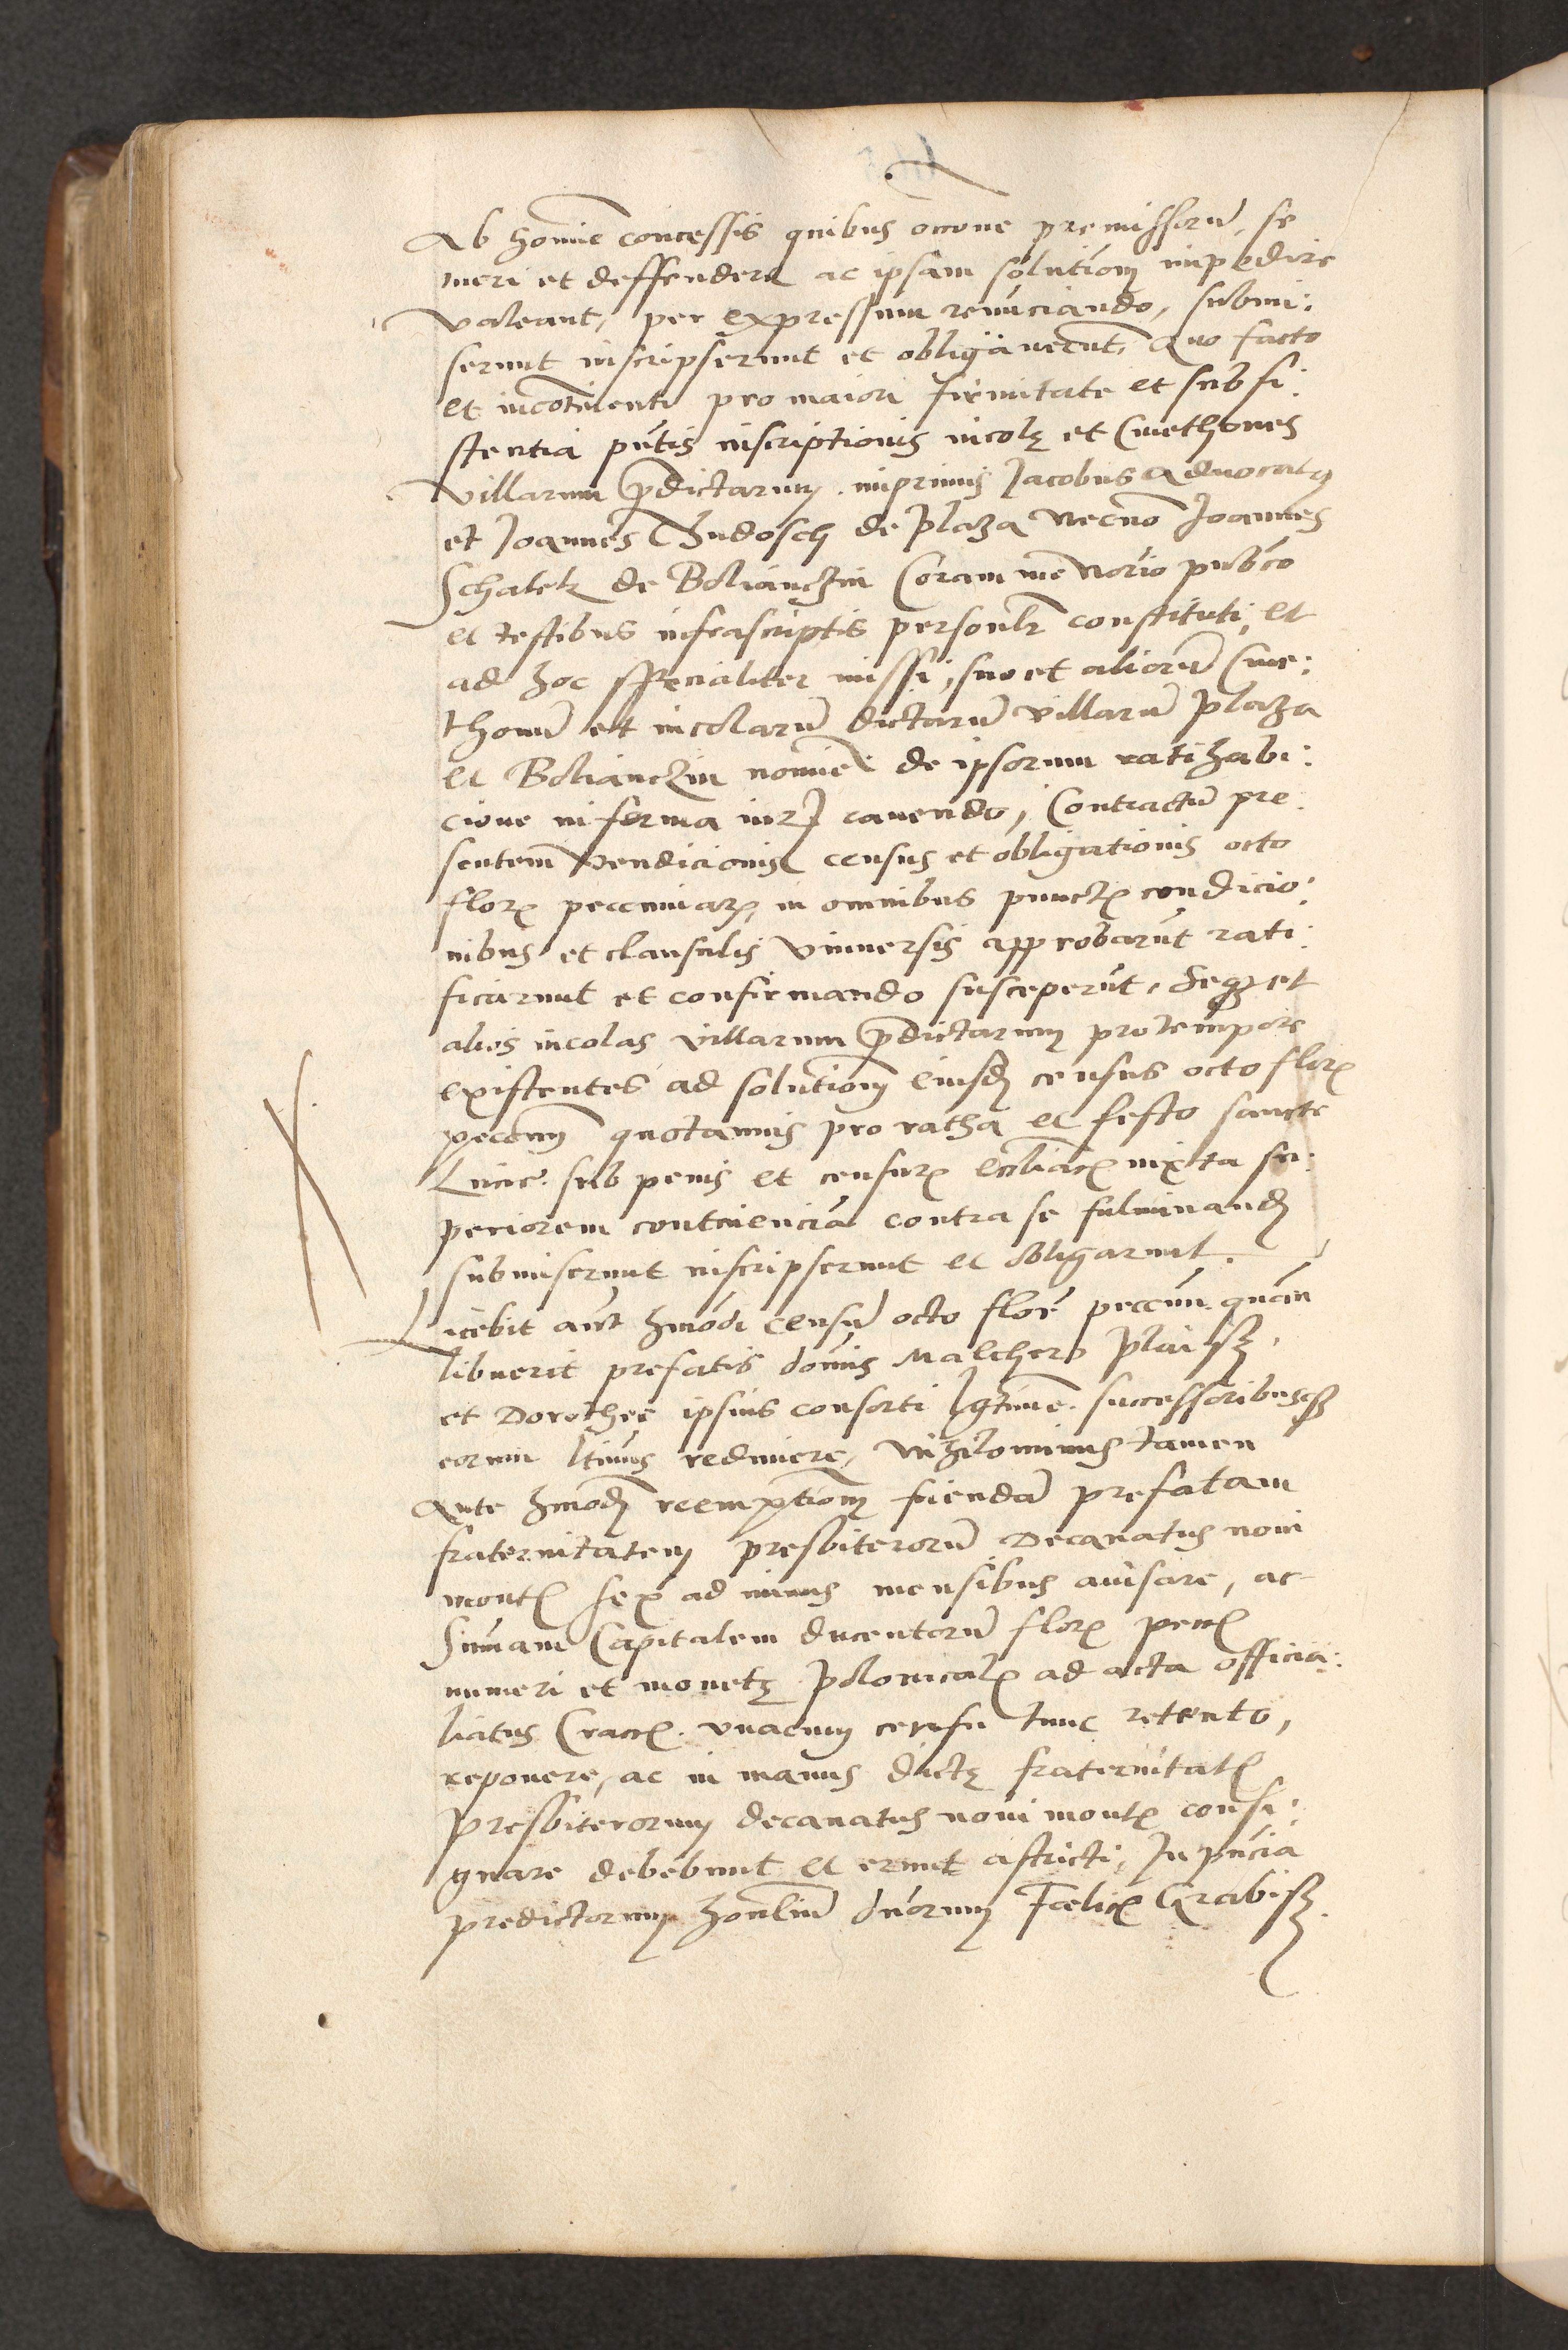 Ab homĩe concessis quibus occone premissorũ, se
tueri et deffendere ac ipsam solutiõm impedire
valeant, per expressum renũciando, submi:
serunt inscripserunt et obligaverũt, Quo facto
et incõtinenti pro maiori firmitate et subsi:
stentia pñtis inscriptionis incolę et Cmethones
villarum p̃dictarum. imprimis Jacobus Advocatus
et Joannes Chudosch de plaza necnõ Joannes
Schalek de Boliancžin Coram me Norio pubco
et testibus infrascriptis persoñlr constituti, et
ad hoc specialiter missi, suo et aliorũ Cme:
thonũ et incolarũ dictarũ villarũ plaza
et Bolianczin nomĩe de ipsorum ratihabi:
cione in forma iuris cavendo, Contractũ pre:
sentem vendicionis census et obligationis octo
flor pecuniar, in omnibus punct condicio:
nibus et clausulis universis approbarũt rati:
ficarunt et confirmando susceperũt, Seq et
alios incolas villarum p̃dictarum pro tempore
existentes ad solutiõm eiusd census octo flor
peccunij quotannis pro ratha et festo sancte
Lucie. sub penis et censur ecclĩast iuxta su:
periorem continenciã contra se fulminand
submiserunt inscripserunt et obligarunt.
Licebit aũt hmõdi censũ octo florẽ peccuñ. quãn
libuerit prefatis domĩs Malchero plaisz,
et Dorothee ipsius consorti lgtime. successoribusque
eorum ltimis redimere, Nihilominus tamen
Ante hmõdj reemptiõm fiendã prefatam
fraternitatem presbiterorũ Decanatus novi
mont sex ad minus mensibus avisare, ac
Sum̃am Capitalem ducentorũ flor pecc
numeri et monetę polonical ad acta officia:
liatus Cracc. unacum censu tunc retento,
reponere, ac in manus dictę fraternitat
presbiterorum decanatus novi mont consi:
gnare debebunt et erunt astricti, In pñcia
predictorum honliũ dñorum Fœlic Grabisz